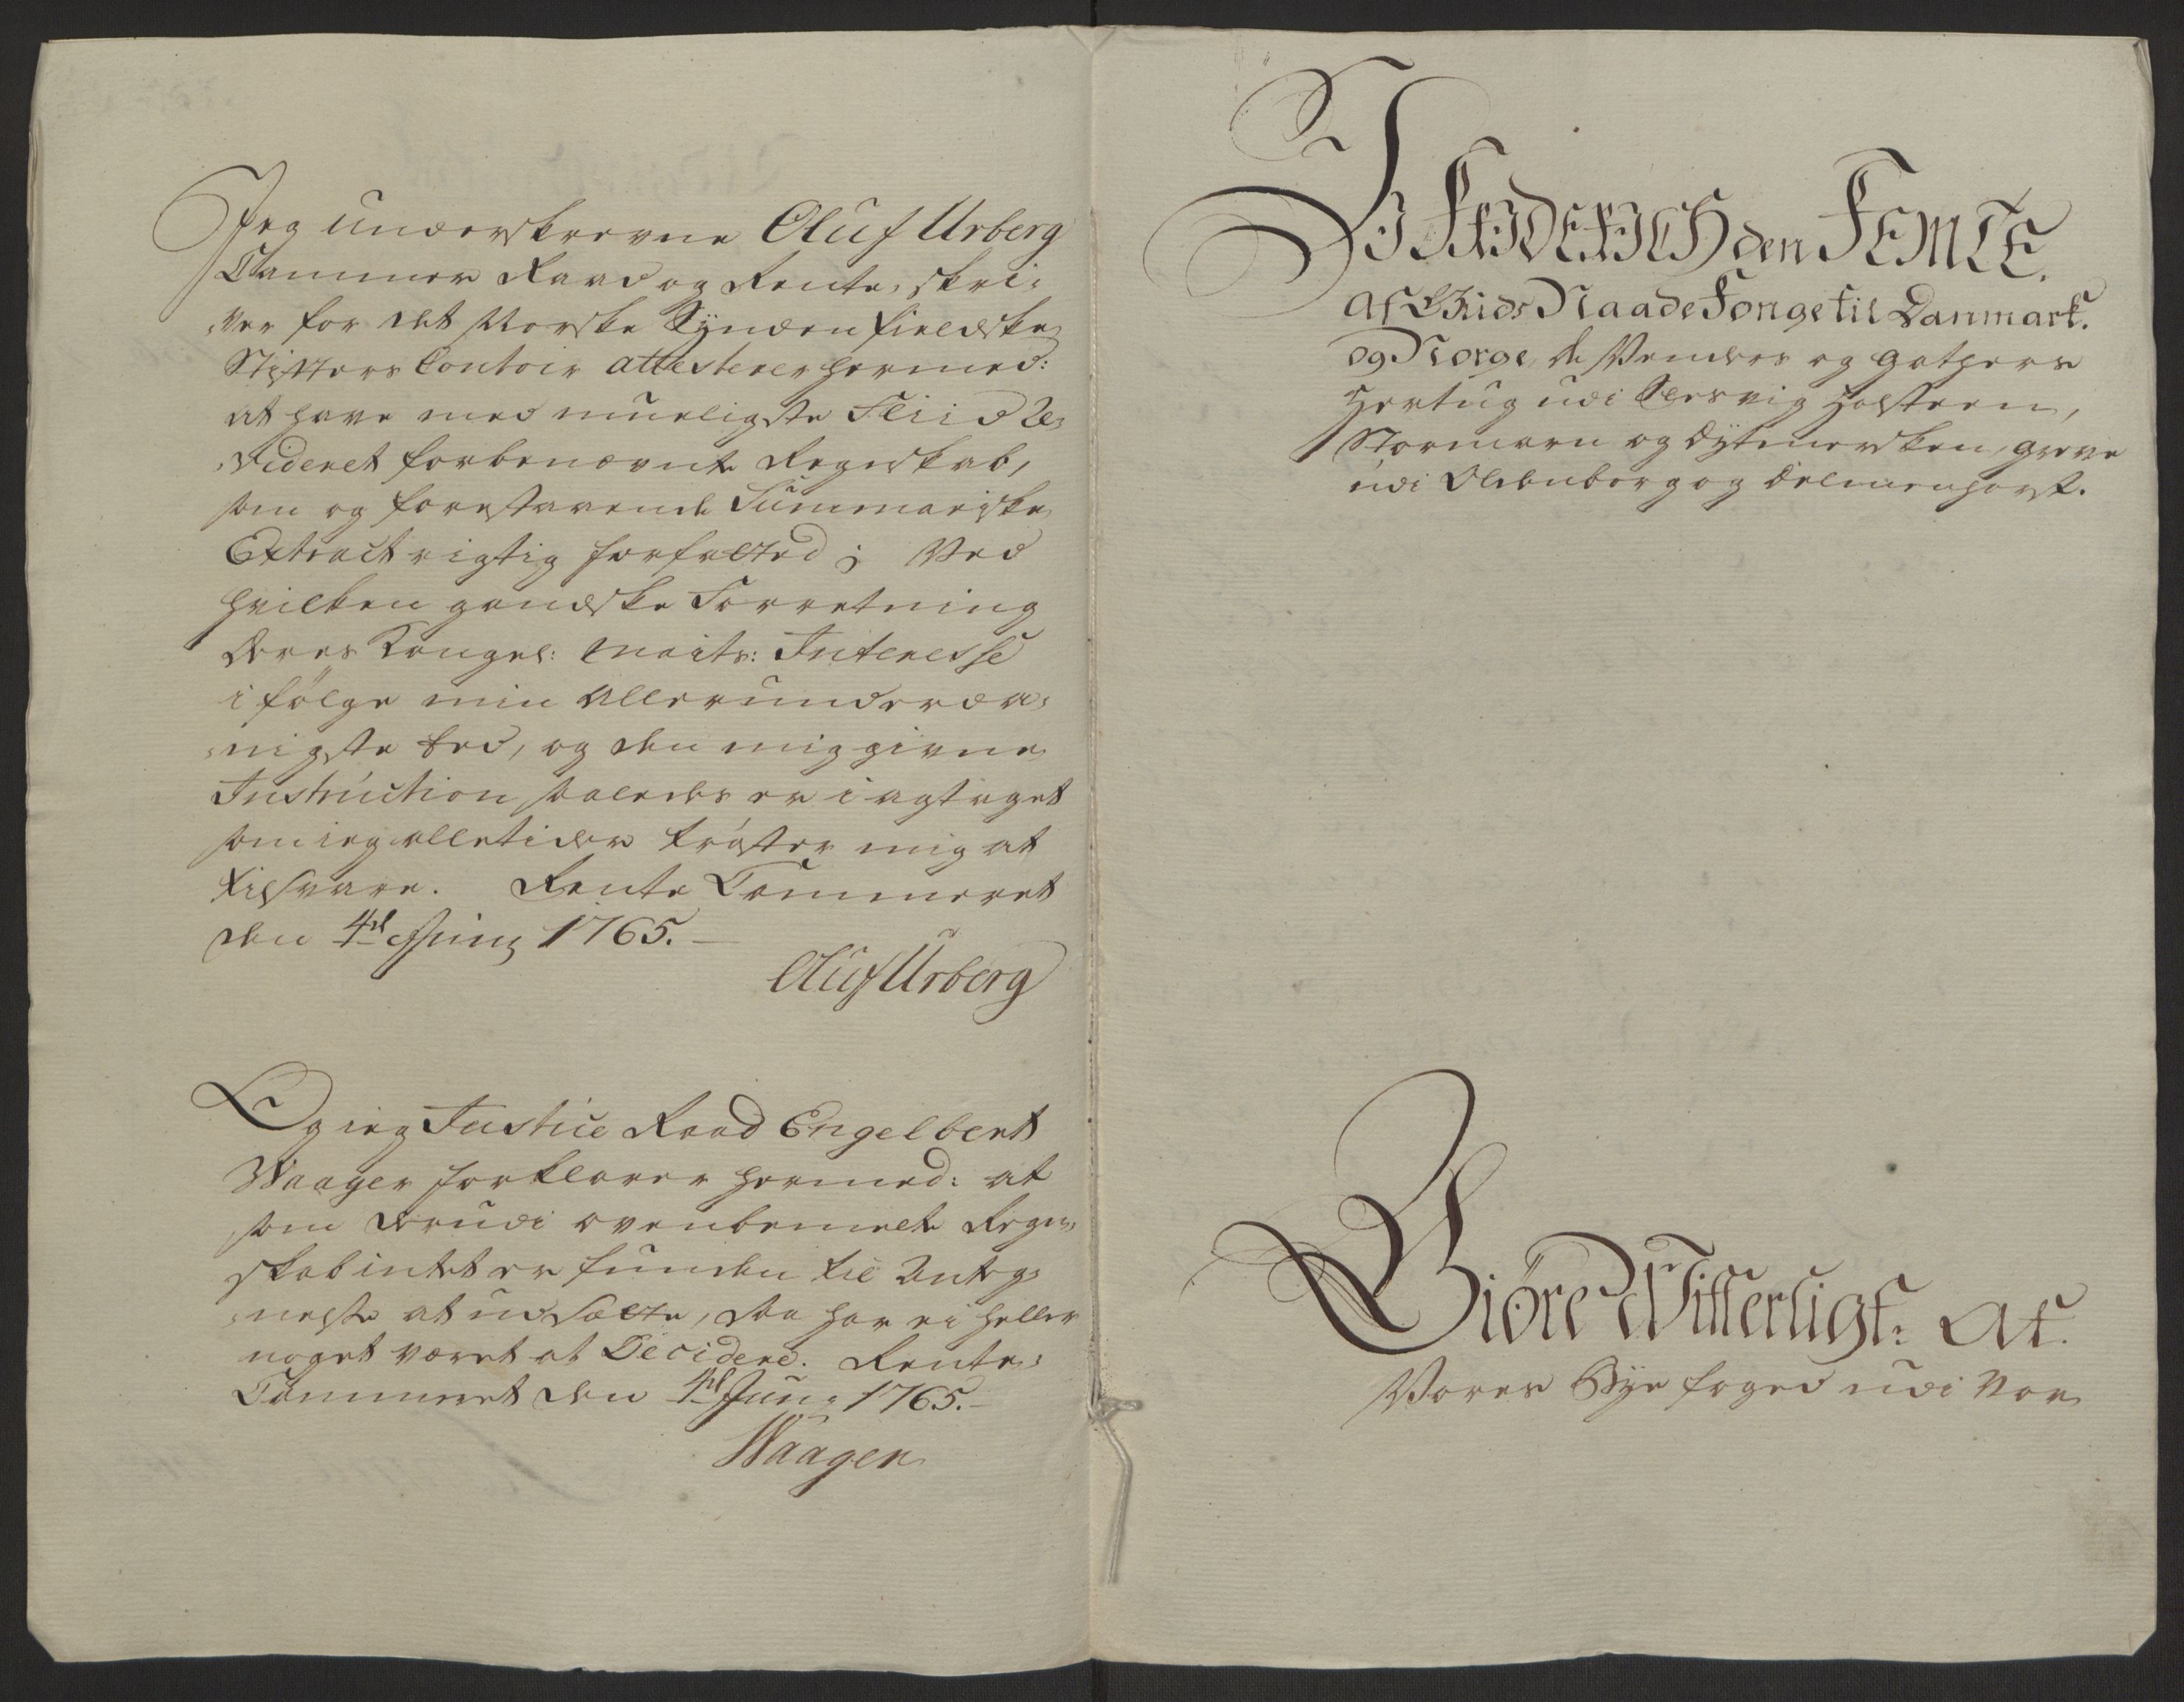 Jeg underskrevne Oluf Urberg
Cammer Raad og Rente-skri-
-ver for det Norske Syndenfieldske
Stifters Contoir attesterer hermed:
at have med mueligste Fliid Re-
-videret forbenævnte Regnskab,
som og forestaaende Summariske
Extract rigtig forfatted; Ved
hvilken gandske Forretning
Deres Kongel: Maits: Interesse
i følge min allerunderda-
-nigste Eed, og den mig givne
Instruction saaledes er i agtaget
som ieg alletider trøster mig at
tilsvare. Rente Cammeret
den 4de Junij 1765.
Oluf Urberg
Og ieg Justice Raad Engelbert
Waager forklarer hermed: at
som derudi ovenbemelte Regn-
skab intet er funden til Anteg-
-nelse at udsætte, saa har ei heller
noget været at Decidere. Rente-
Cammeret den 4de Juni 1765.
Waager
VI FRIDERICH den FEMTE.
Af Guds Naade Konge til Danmark.
og Norge, de Venders og Gothers
Hertug udi Slesvig Holsteen,
Stormarn og Dytmersken, Greve
udi Oldenborg og Delmenhorst.
Giöre Vitterligt: At.
Vores Bye foged udi Vor